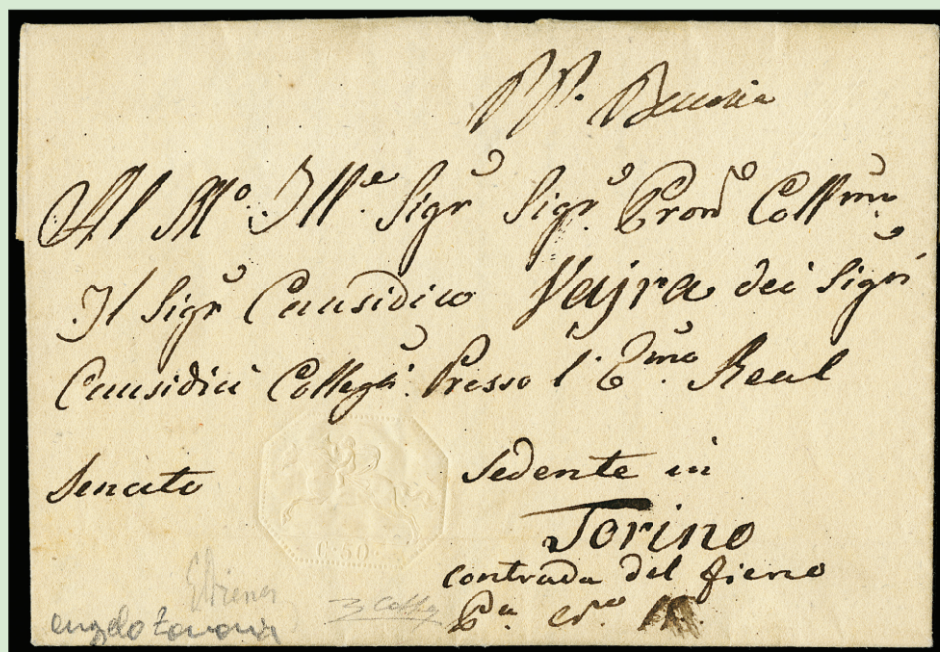 P. P.
Al M.o Ill.e Sig.r Sig.r Pron Coll.mo
Il Sig.r Causidico Vajra dei Sig.ri
Causidici Colleg.ti Presso l'E.mo Real
Senato Sedente in
Torino
C. 50
contrada del fieno